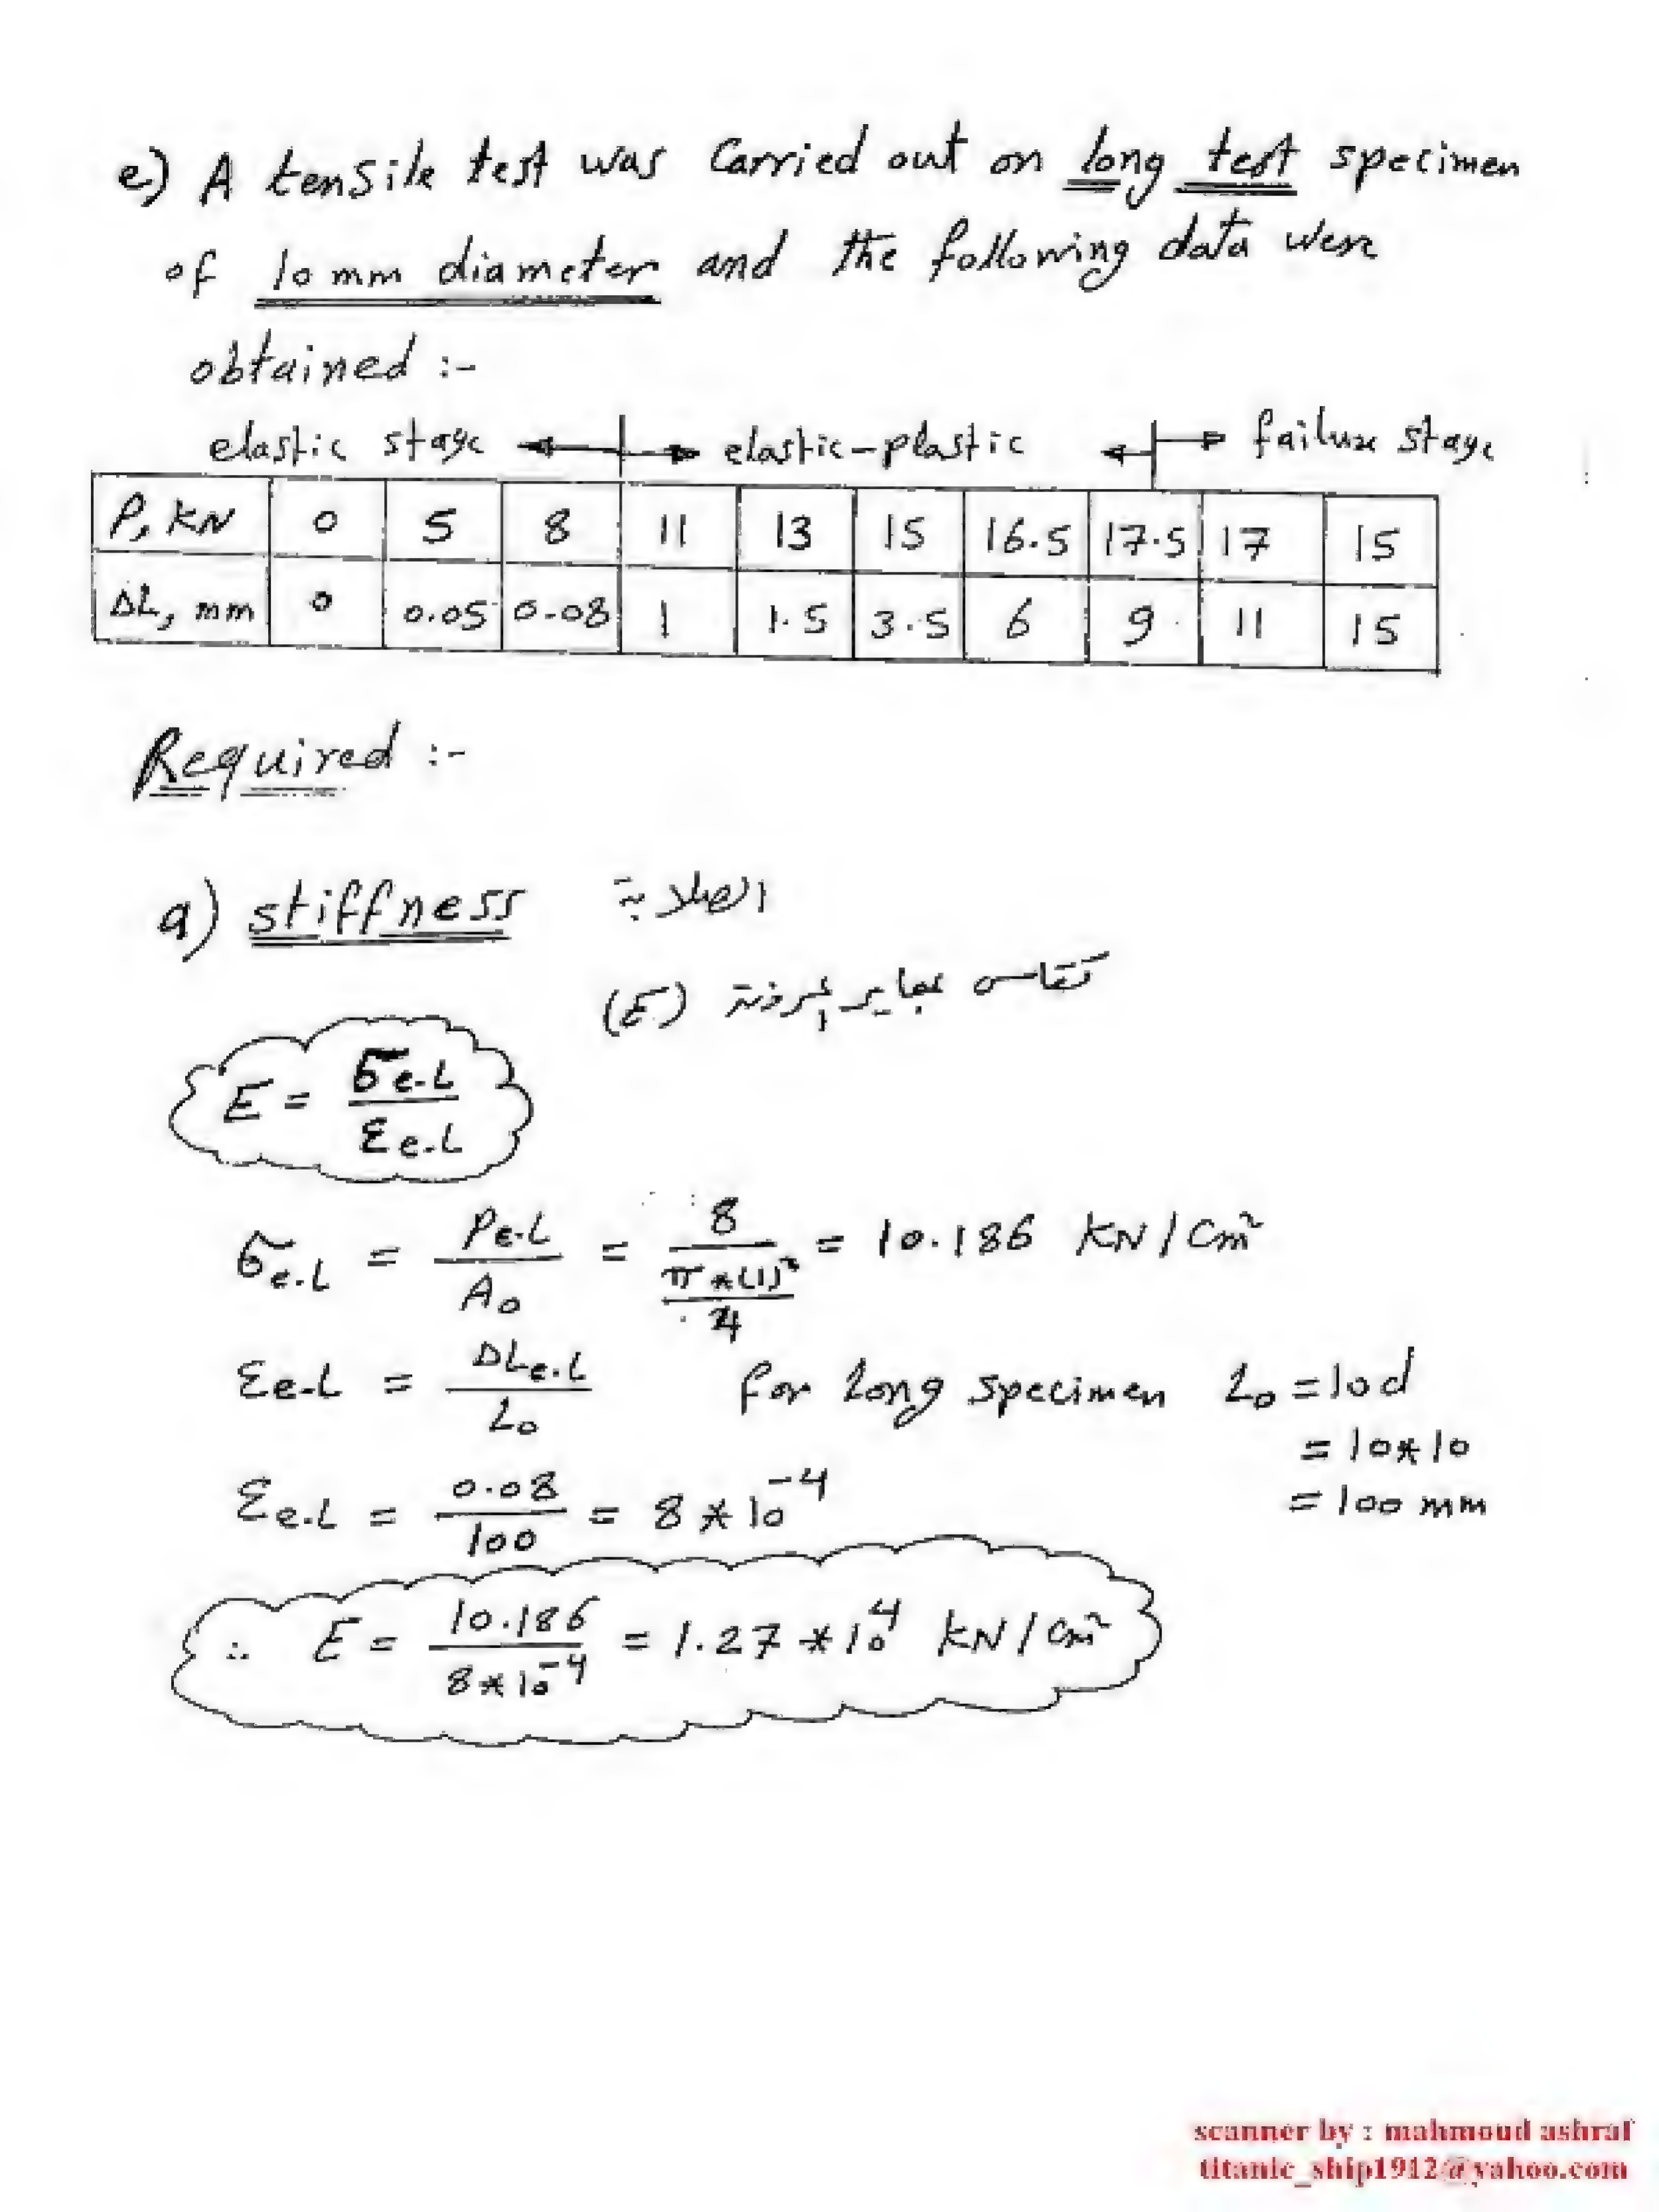 e) A tensile test was Carried out on long test specimen
of 10 mm diameter and the following data were
obtained :-
elastic stage elastic-plastic failure stage
P, KN 0 5 8 11 13 15 16.5 17.5 17 15
ΔL, mm 0 0.05 0.08 1 1.5 3.5 6 9 11 15
Required :-
a) stiffness الصلابة
تقاس بمعاير المرونة (E)
E = σe.L / εe.L
σe.L = Pe.L / A₀ = 8 / (π*(1)²/4) = 10.186 KN/Cm²
εe.L = ΔLe.L / L₀ for Long specimen L₀ = 10d
= 10*10
εe.L = 0.08 / 100 = 8*10⁻⁴ = 100 mm
∴ E = 10.186 / 8*10⁻⁴ = 1.27*10⁴ KN/Cm²
scanner by : mahmoud ashraf
titanic_ship1912@yahoo.com